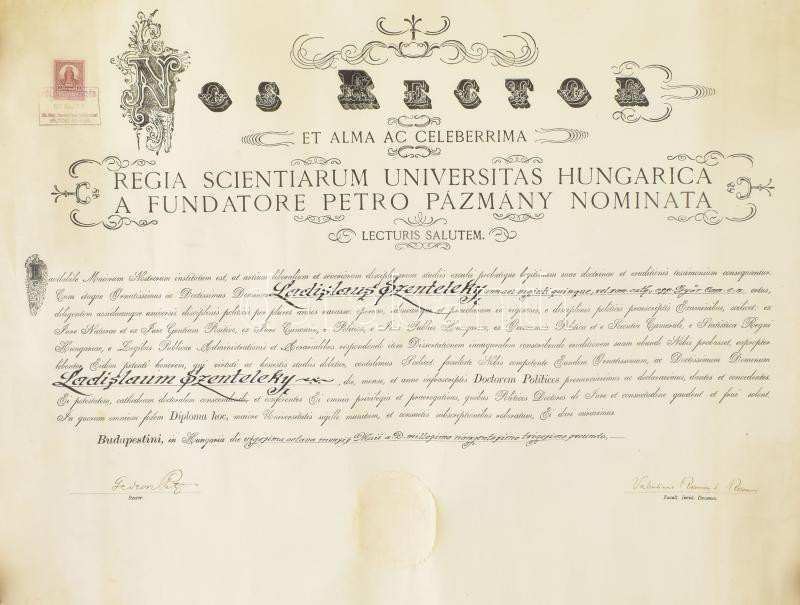 NOS RECTOR
ET ALMA AC CELEBERRIMA
REGIA SCIENTIARUM UNIVERSITAS HUNGARICA
A FUNDATORE PETRO PÁZMÁNY NOMINATA
LECTURIS SALUTEM.
Laudabile Maiorum Nostrorum institutum est, ut artium liberalium et severiorum disciplinarum studiis exculti probatique legitimum suae doctrinae et eruditionis testimonium consequantur.
Cum itaque Ornatissimus ac Doctissimus Dominus Ladislaus Szenteleky annos viginti quinque, rel. rom. cath. opp. Győr Com. e. n. ortus,
diligentem assiduamque universis disciplinis politicis per plures annos navasset operam, idemque et
ex
Iure Naturae et ex Iure Gentium Positivo, ex Iure Canonico, ex Politica, e Iure Publico Hungarico, ex Oeconomia Politica et e Scientia Camerali, e Statistica Regni
Hungariae, e Legibus Publicae Administrationis et Aerarialibus respondendo, tum Dissertationem inauguralem conscribendo eruditionem suam abunde Nobis probasset, eapropter
libenter Eidem petenti honorem, qui virtuti ac honestis studiis debetur, contulimus Scilicet facultate Nobis competente Eundem Ornatissimum, ac Doctissimum Dominum
Ladislaum Szenteleky, die, mense, et anno infrascriptis Doctorem Politices pronunciavimus ac declaravimus, dantes et concedentes
Ei potestatem, cathedram doctoralem conscendendi, et conferentes Ei omnia privilegia et praerogativas, quibus Politices Doctores de Iure et consuetudine gaudent et frui solent.
In quorum omnium fidem Diploma hoc, maiore Universitatis sigillo munitum, et consuetis subscriptionibus roboratum, Ei dari curavimus.
Budapestini, in Hungaria die vigesima octava mensis Maii a D. millesimo nongentesimo trigesimo secundo.
Rector.
Facult. Iurid. Decanus.